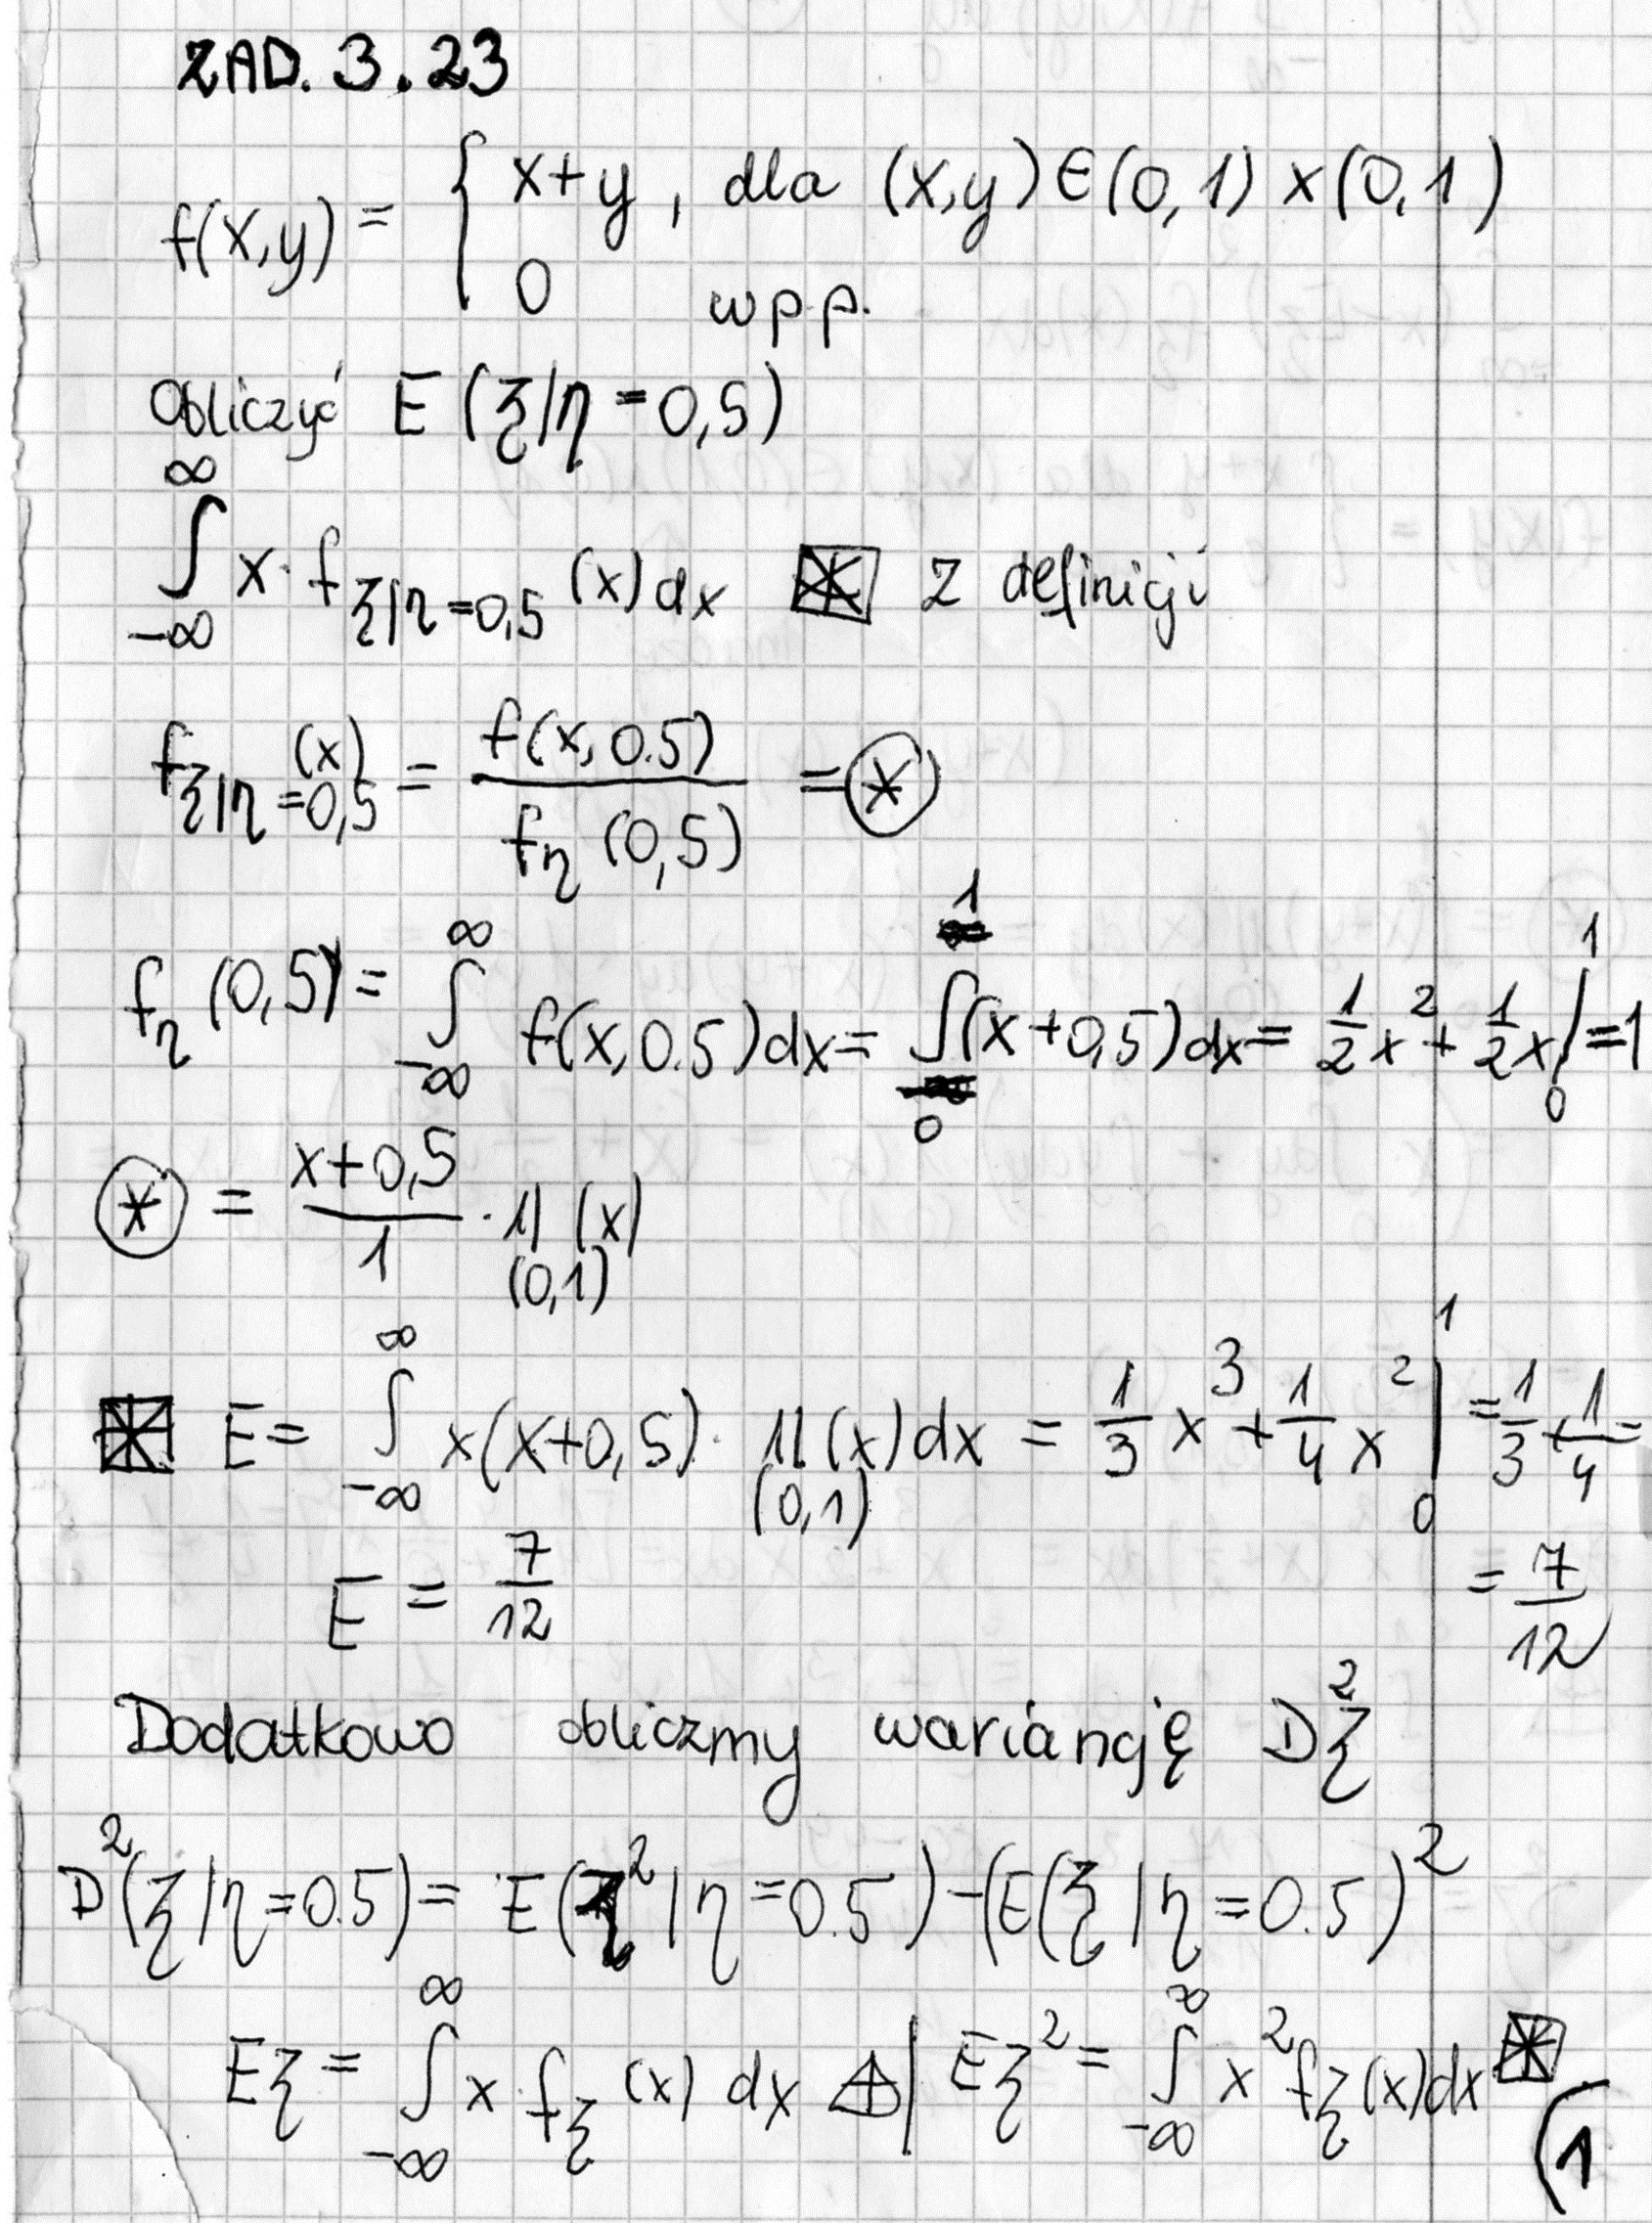 ZAD. 3.23
f(x,y) = { x+y, dla (x,y)∈(0,1)×(0,1)
0 wpp.
Obliczyć E(ξ/η=0,5)
∞∫-∞ x·f ξ|η=0,5 (x)dx ⊠ z definicji
f ξ|η=0,5 (x) = f(x,0.5) / fη(0,5) = ⊛
fη(0,5) = ∞∫-∞ f(x,0.5)dx = 1∫0 (x+0,5)dx = 1/2 x² + 1/2 x |1 0 = 1
⊛ = x+0,5 / 1 · 1l(0,1) (x)
⊠ E = ∞∫-∞ x(x+0,5)· 1l(0,1) (x)dx = 1/3 x³ + 1/4 x² |1 0 = 1/3 + 1/4 =
E = 7/12 = 7/12
Dodatkowo obliczmy wariancję D²ξ
D²(ξ/η=0.5) = E(ξ²|η=0.5) - (E(ξ|η=0.5)²
Eξ = ∞∫-∞ x fξ(x) dx | Eξ² = ∞∫-∞ x² fξ(x)dx ⊠
(1